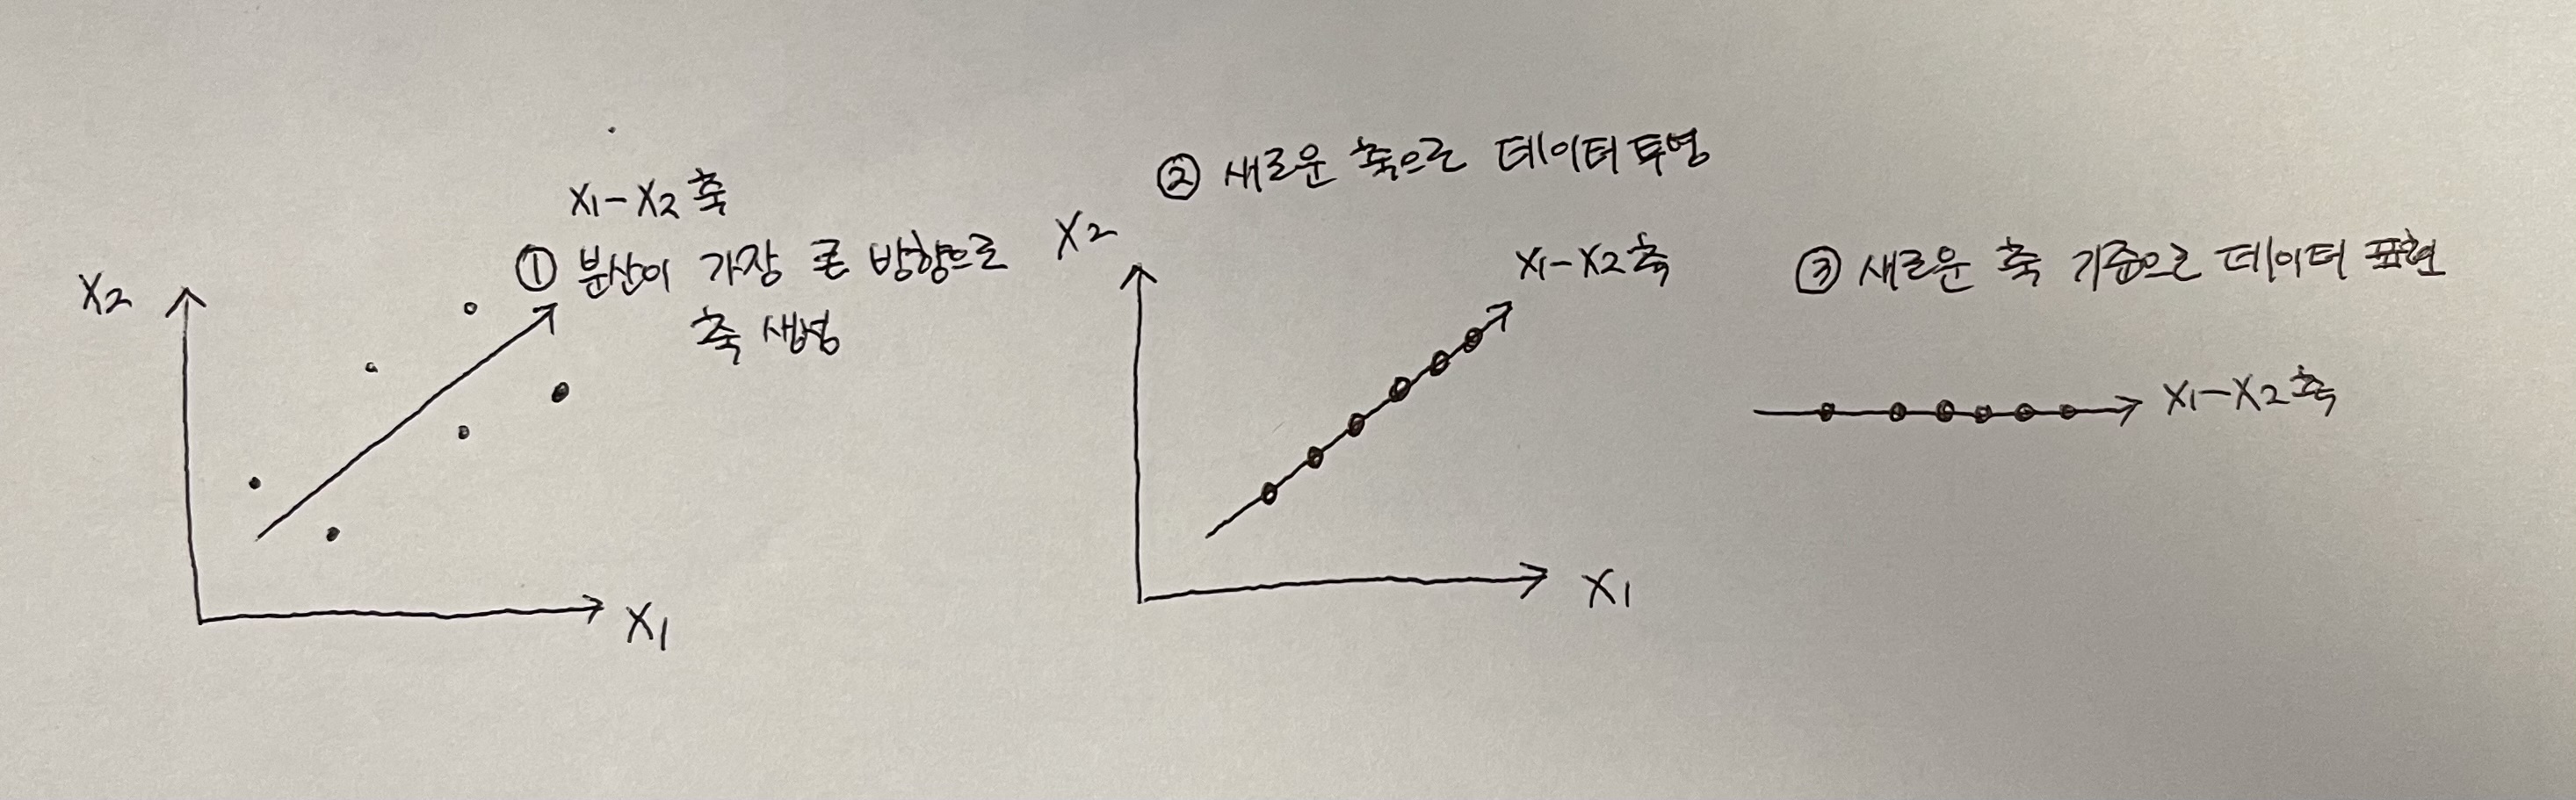 X1-X2 축
① 분산이 가장 큰 방향으로
축 생성
X2
X1
② 새로운 축으로 데이터 투영
X2
X1-X2축
X1
③ 새로운 축 기준으로 데이터 표현
X1-X2축